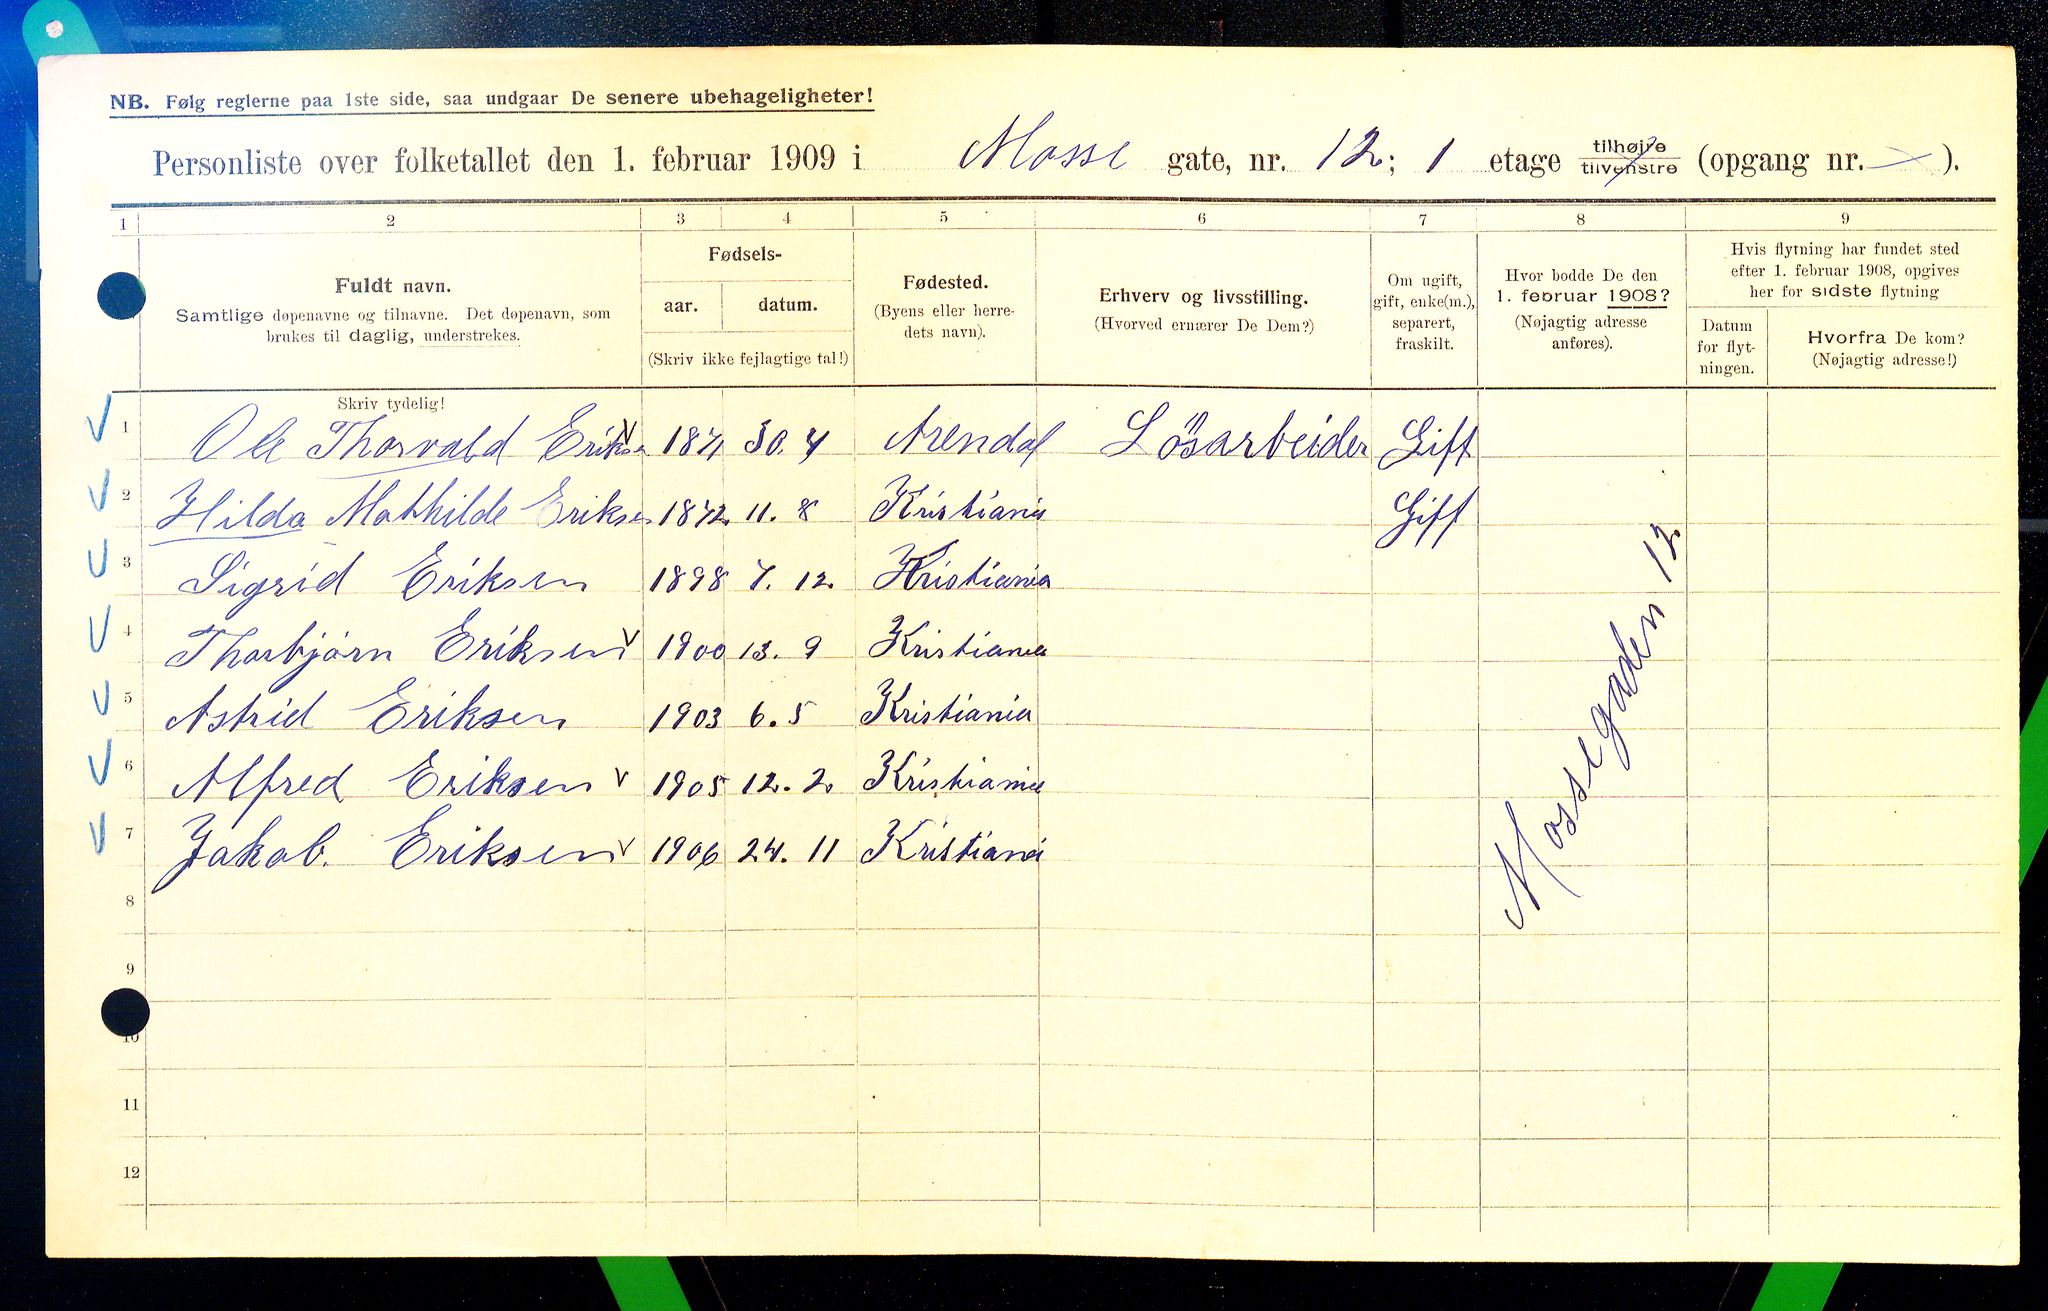 NB. Følg reglerne paa 1ste side, saa undgaar De senere ubehageligheter!
Personliste over folketallet den 1. februar 1909 i Mosse gate, nr. 12; 1 etage tilhøjre tilvenstre (opgang nr. ).
1 2 3 4 5 6 7 8 9
Fuldt navn.
Samtlige døpenavne og tilnavne. Det døpenavn, som
brukes til daglig, understrekes.
Fødsels-
aar. datum.
(Skriv ikke fejlagtige tal!)
Fødested.
(Byens eller herre-
dets navn).
Erhverv og livsstilling.
(Hvorved ernærer De Dem?)
Om ugift,
gift, enke(m.),
separert,
fraskilt.
Hvor bodde De den
1. februar 1908?
(Nøjagtig adresse
anføres).
Hvis flytning har fundet sted
efter 1. februar 1908, opgives
her for sidste flytning
Datum
for flyt-
ningen.
Hvorfra De kom?
(Nøjagtig adresse!)
Skriv tydelig!
1 Ole Thorvald Eriksen 1871 30. 7 Arendal Lösarbeider Gift
2 Hilda Mathilde Eriksen 1872 11. 8 Kristiania Gift
3 Sigrid Eriksen 1898 7. 12 Kristiania
4 Thorbjörn Eriksen 1900 13. 9 Kristiania
5 Astrid Eriksen 1903 6. 5 Kristiania
6 Alfred Eriksen 1905 12. 2 Kristiania
7 Jakob. Eriksen 1906 24. 11 Kristiania
Mossegaden 12
8
9
10
11
12